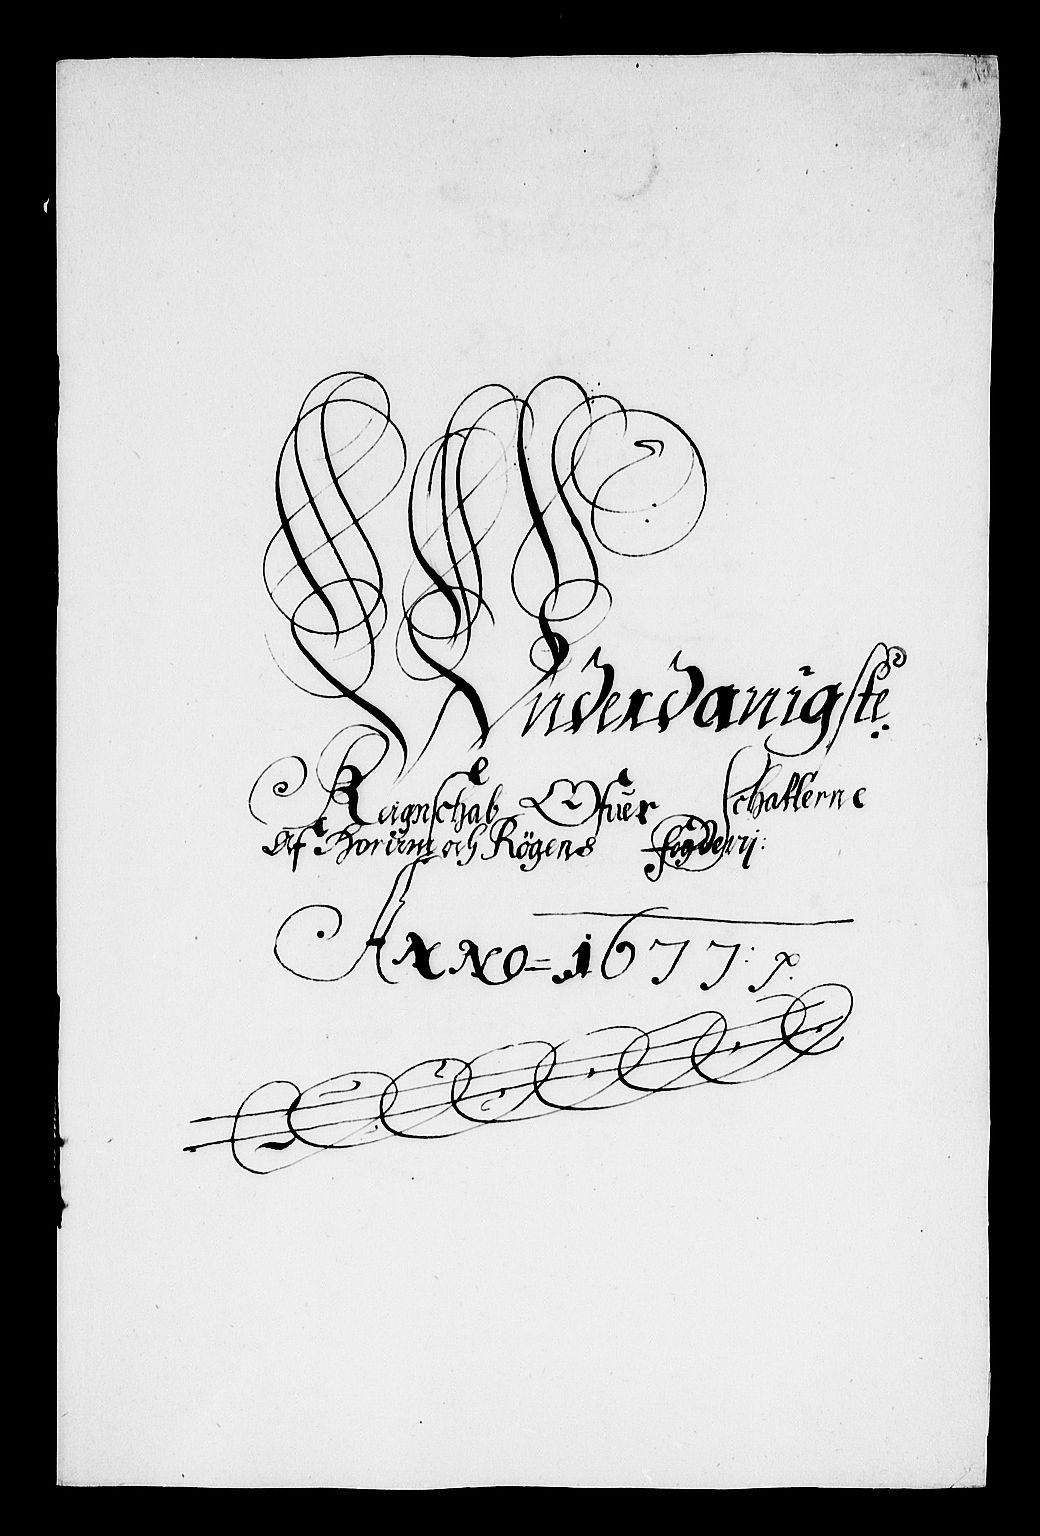 Underdanigste
Regnschab Ofuer Schatterne
Af Horumb och Rögens fogderij:
ANNO = 1677: p.